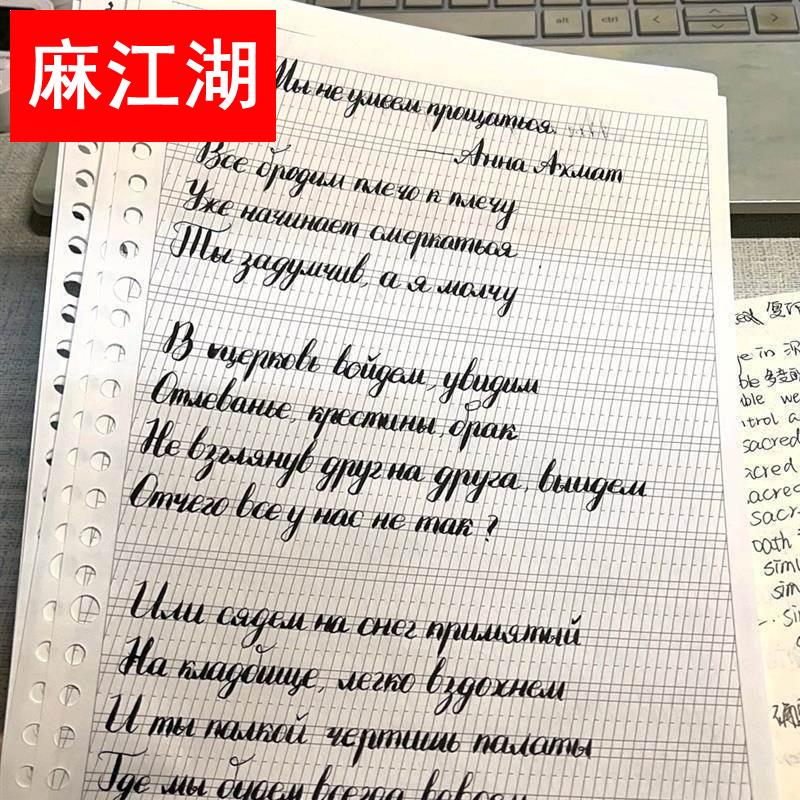 麻江湖
alt
ctrl
Мы не умеем прощаться.
—Анна Ахмат
Все бродим плечо к плечу
Уже начинает смеркаться
Ты задумчив, а я молчу
В церковь войдем, увидим
Отпеванье, крестины, брак
Не взглянув друг на друга, выйдем
Отчего все у нас не так?
Или сядем на снег примятый
На кладбище, легко вздохнем
И ты палкой чертишь палаты
Где мы будем всегда вдвоем
in
we
sacred
sacred
acred
sacr
path
simu
sim